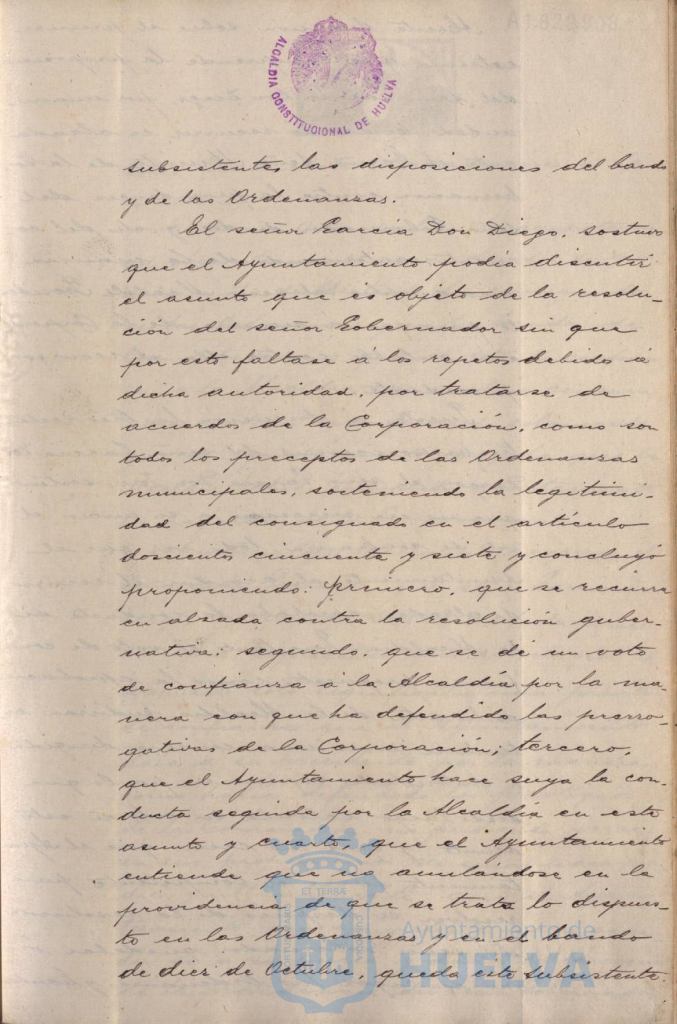 ALCALDIA CONSTITUCIONAL DE HUELVA
subsistentes las disposiciones del bando
y de las Ordenanzas.
El señor Garcia Don Diego, sostuvo
que el Ayuntamiento podia discutir
el asunto que es objeto de la resolu-
ción del señor Gobernador sin que
por esto faltase á los repetos debidos á
dicha autoridad, por tratarse de
acuerdos de la Corporación, como son
todos los preceptos de las Ordenanzas
municipales, sosteniendo la legitimi-
dad del consignado en el artículo
doscientos cincuenta y siete y concluyó
proponiendo: primero, que se recurra
en alzada contra la resolución guber-
nativa; segundo, que se dé un voto
de confianza á la Alcaldía por la ma-
nera con que ha defendido las prerro-
gativas de la Corporación; tercero,
que el Ayuntamiento hace suya la con-
ducta seguida por la Alcaldía en este
asunto y cuarto, que el Ayuntamiento
entiende que no anulándose en la
providencia de que se trata lo dispues-
to en las Ordenanzas y en el bando
de diez de Octubre, queda éste subsistente.
Ayuntamiento de
HUELVA